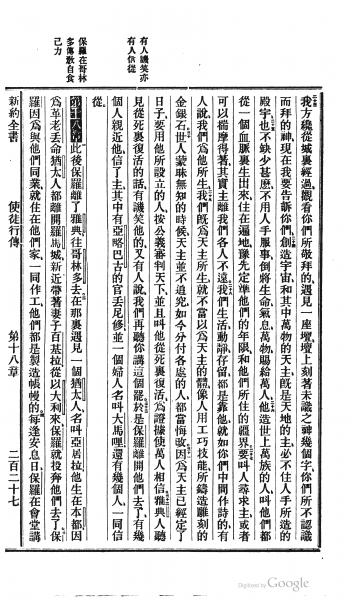 有人譏笑亦
有人信從
保羅在哥林
多傳敎自食
己力
我方纔從城裏經過觀看你們所敬拜的遇見一座壇壇上刻著未識之神幾個字你們所不認識
而拜的神現在我要告訴你們創造宇宙和其中萬物的天主旣是天地的主必不住人手所造的
殿宇也不缺少甚麽不用人手服事倒將生命氣息萬物賜給萬人他造世上萬族的人叫他們都
從一個血脈裏生出來住在遍地豫先定準他們的年限和他們所住的疆界要叫人尋求主或者
可以揣摩得著其實主離我們各人不遠我們生活動靜存留都是靠他就如你們中間作詩的有
人說我們爲他所生我們旣爲天主所生就不當以爲天主的體像人用工巧技能所鑄造雕刻的
金銀石世人蒙昧無知的時候天主並不追究如今分付各處的人都當悔改因爲天主已經定了
日子要用他所設立的人按公義審判天下並且叫他從死裏復活爲證據使萬人相信雅典人聽
見從死裏復活的話有譏笑他的又有人說我們再聽你講這個罷於是保羅離開他們去了有幾
個人親近他信了主其中有亞略巴古的官丟尼修並一個婦人名叫大馬哩還有幾個人一同信
從
第十八章此後保羅離了雅典往哥林多去在那裏遇見一個猶太人名叫亞居拉他生在本都因
爲革老丟命猶太人都離開羅馬城新近帶著妻子百基拉從以大利來保羅就投奔他們去了保
羅因爲與他們同業就住在他們家一同作工他們都是製造帳幔的每逢安息日保羅在會堂講
新約全書 使徒行傳 第十八章 二百二十七
Digitized by Google